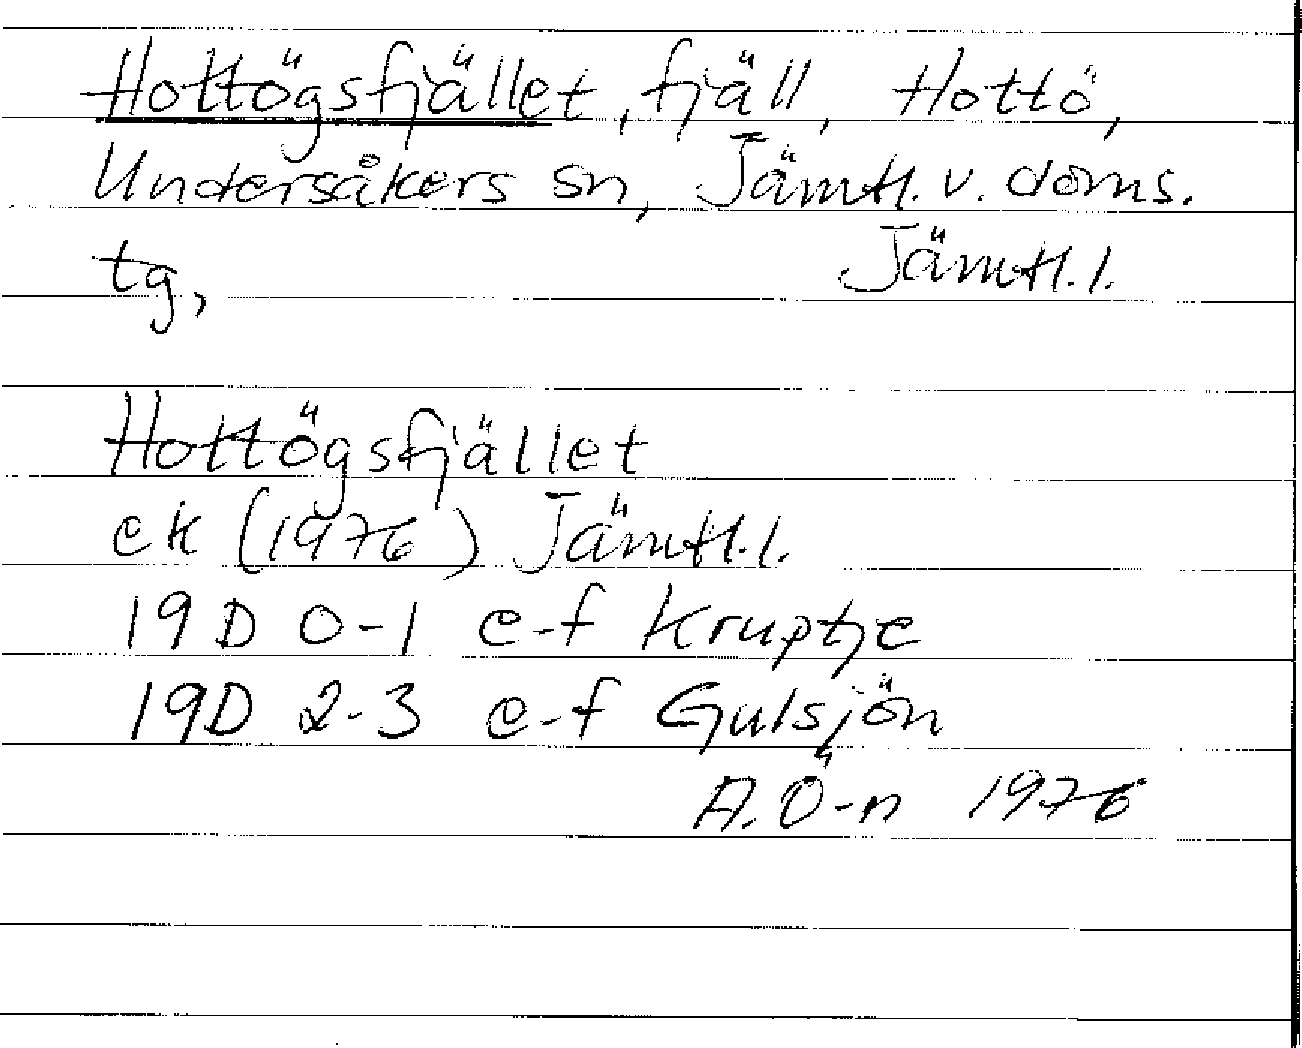 Hottögsfjället, fjäll, Hottö,
Undersåkers sn, Jämtl. v. doms.
tg, Jämtl. l.
Hottögsfjället
ek (1976) Jämtl. l.
19 D 0-1 e-f Kruptje
19D 2-3 e-f Gulsjön
A. Ö-n 1976